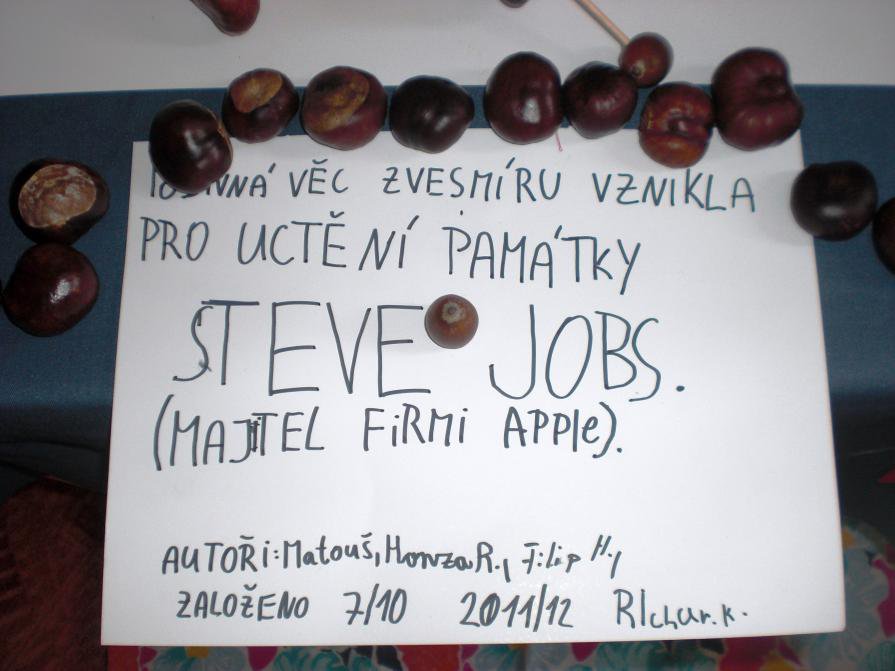 VĚC ZVESMÍRU VZNIKLA
PRO UCTĚNÍ PAMÁTKY
STEVE JOBS.
(MAJITEL FIRMI APPle).
AUTOŘI: Matouš, Honza R., Filip H.,
ZALOŽENO 7/10 2011/12 RIchar.k.